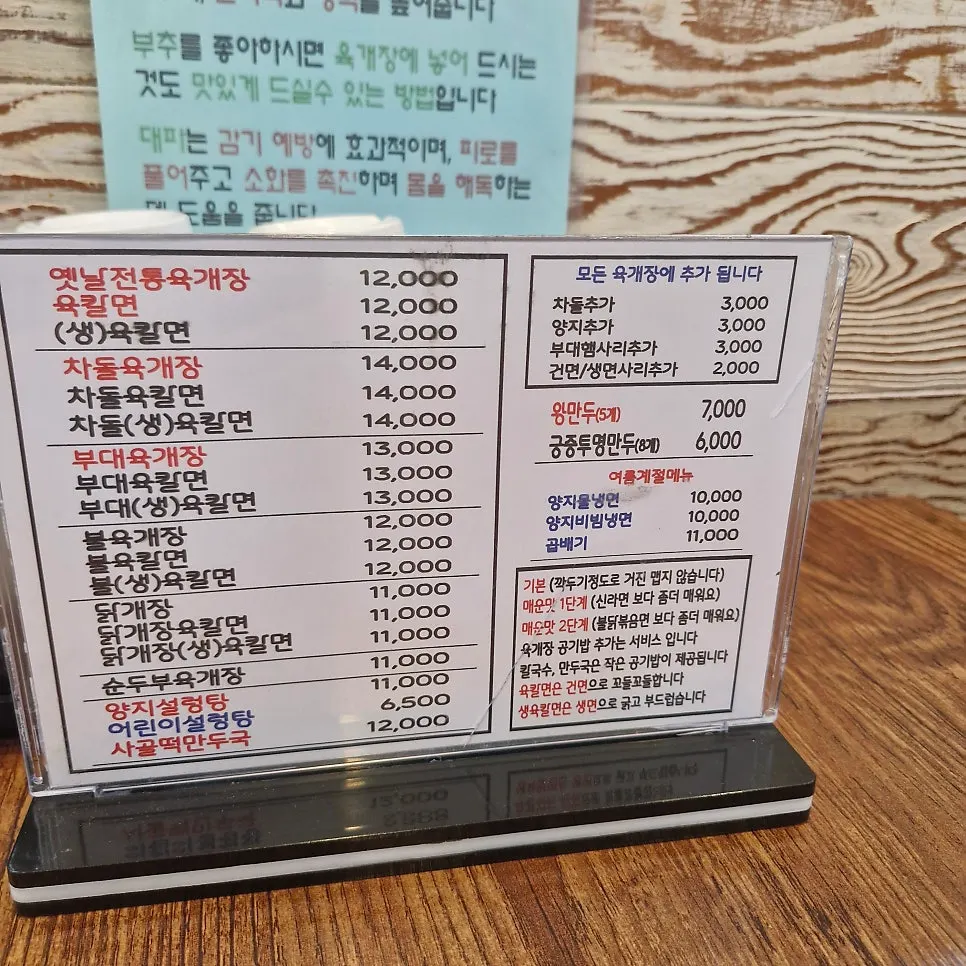 높여줍니다
부추를 좋아하시면 육개장에 넣어 드시는
것도 맛있게 드실수 있는 방법입니다
대파는 감기 예방에 효과적이며, 피로를
풀어주고 소화를 촉진하며 몸을 해독하는
데 도움을 줍니다
옛날전통육개장 12,000
육칼면 12,000
(생)육칼면 12,000
차돌육개장 14,000
차돌육칼면 14,000
차돌(생)육칼면 14,000
부대육개장 13,000
부대육칼면 13,000
부대(생)육칼면 13,000
불육개장 12,000
불육칼면 12,000
불(생)육칼면 12,000
닭개장 11,000
닭개장육칼면 11,000
닭개장(생)육칼면 11,000
순두부육개장 11,000
양지설렁탕 11,000
어린이설렁탕 6,500
사골떡만두국 12,000
모든 육개장에 추가 됩니다
차돌추가 3,000
양지추가 3,000
부대햄사리추가 3,000
건면/생면사리추가 2,000
왕만두(5개) 7,000
궁중투명만두(8개) 6,000
여름계절메뉴
양지물냉면 10,000
양지비빔냉면 10,000
곱배기 11,000
기본 (깍두기정도로 거진 맵지 않습니다)
매운맛 1단계 (신라면 보다 좀더 매워요)
매운맛 2단계 (불닭볶음면 보다 좀더 매워요)
육개장 공기밥 추가는 서비스 입니다
칼국수, 만두국은 작은 공기밥이 제공됩니다
육칼면은 건면으로 꼬들꼬들합니다
생육칼면은 생면으로 굵고 부드럽습니다